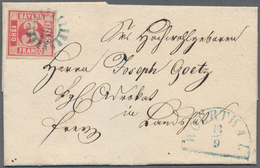 BAYERN
DREI
FRANCO
Sr Hochwohlgeboren
Herrn Joseph Goetz
Kgl Advokat
in
frei Landshut
WOERTH A/I
13
9